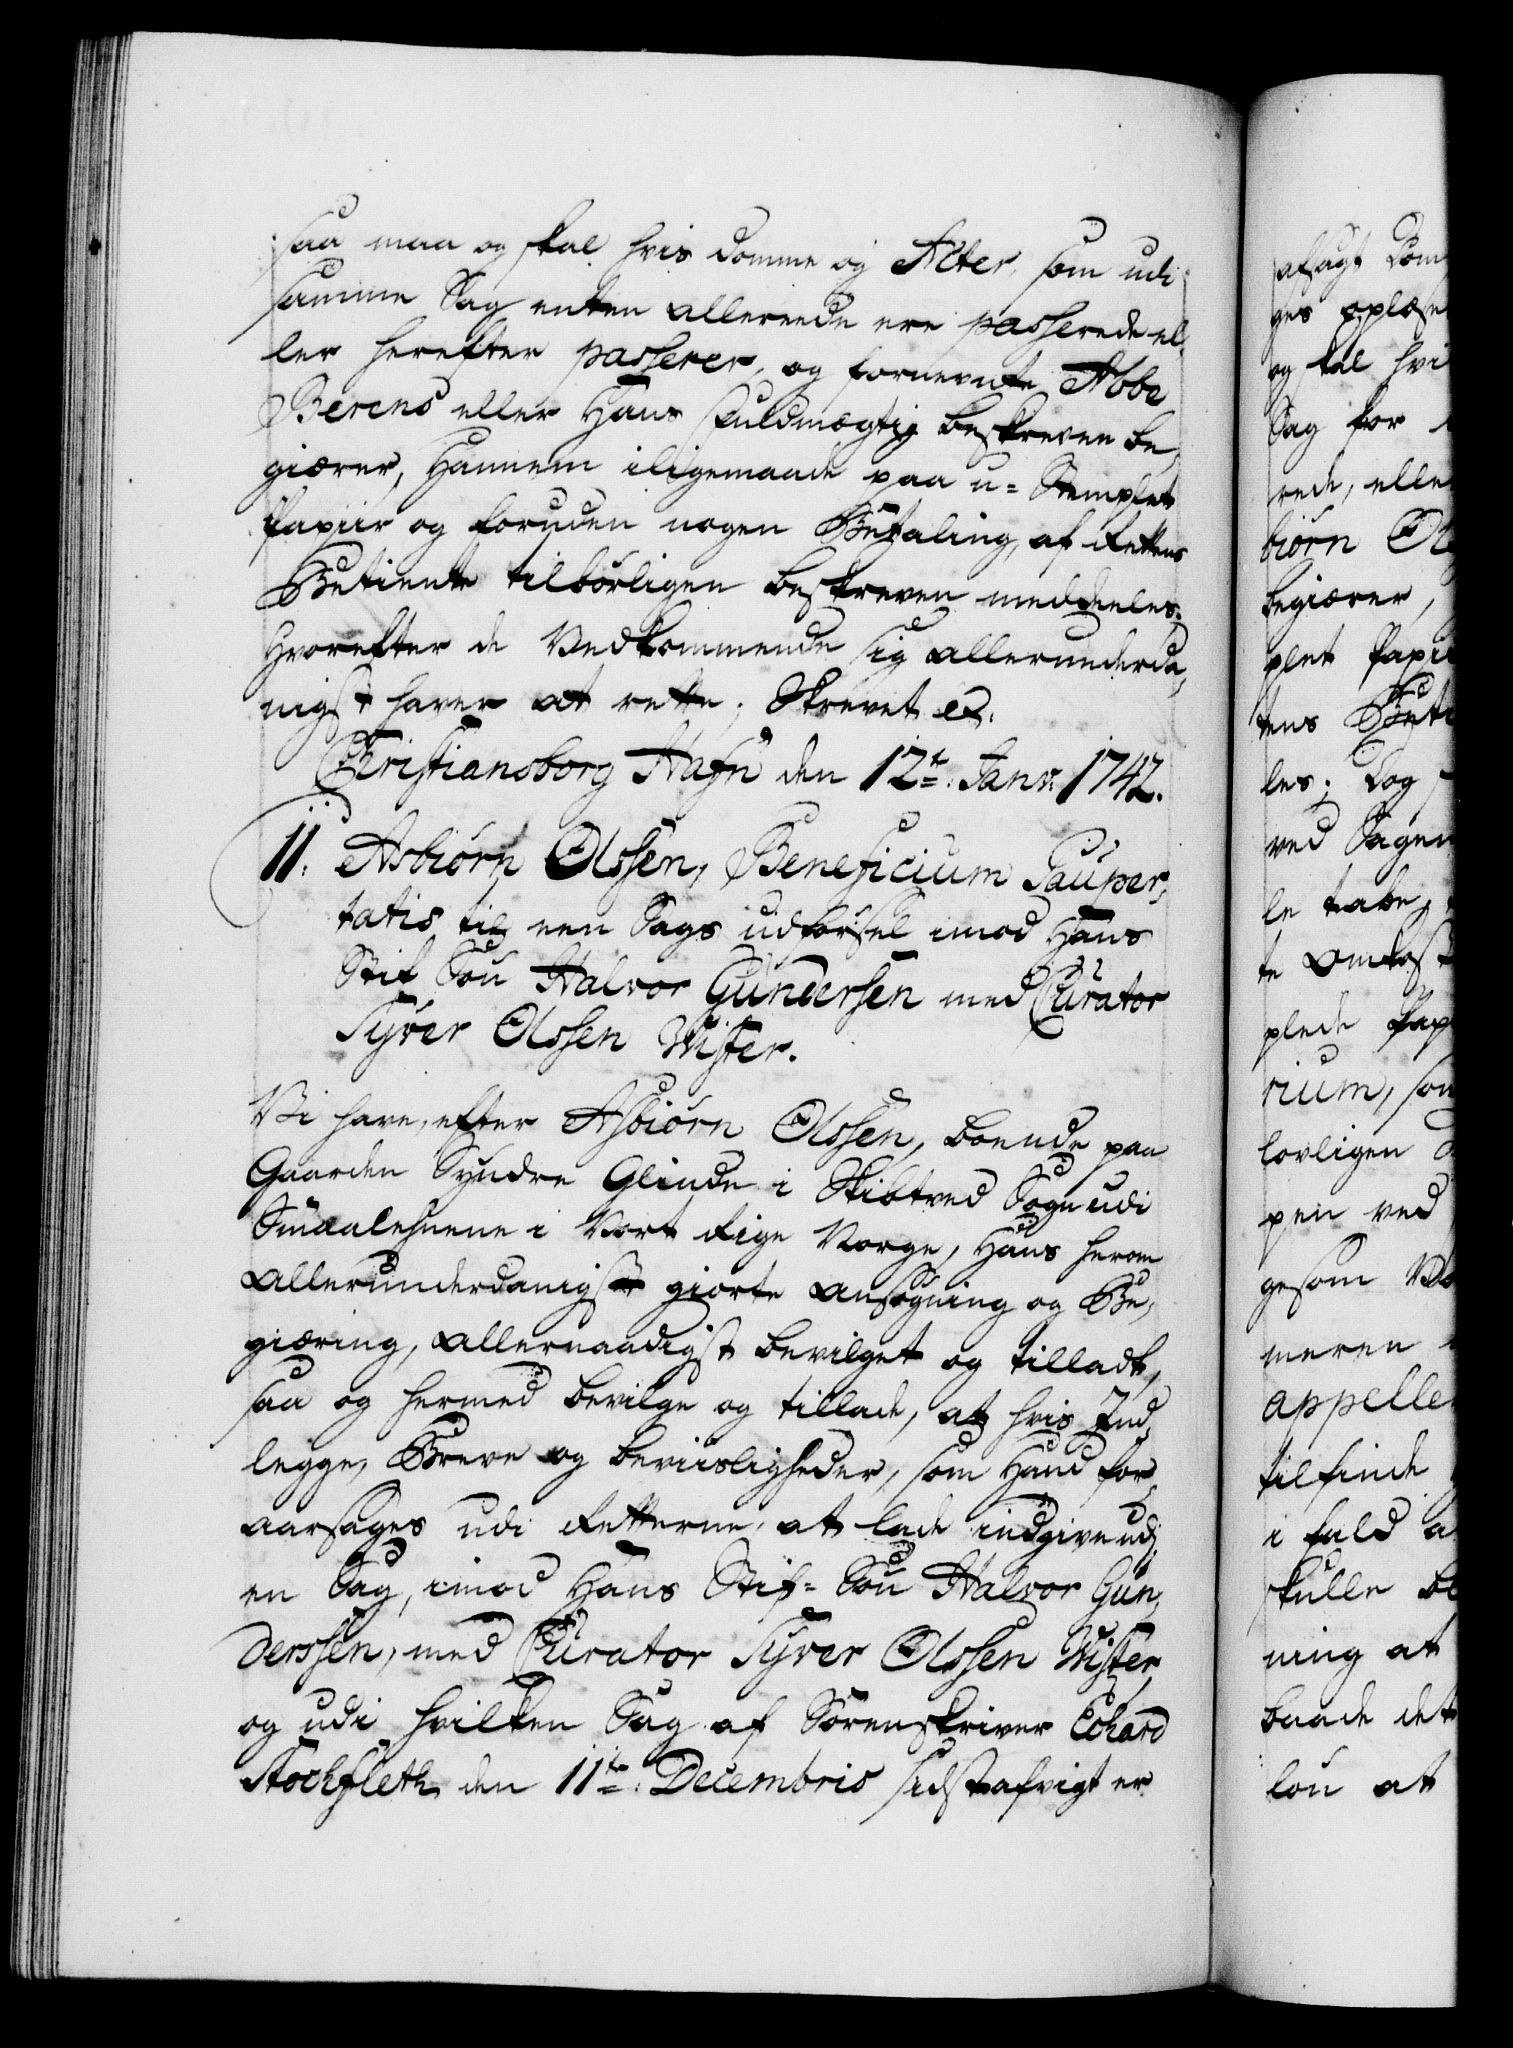 saa maa og skal hvis Domme og Acter, som udi
samme Sag enten allereede ere passerede el,
ler herefter passerer, og fornevnte Abbe
Berens eller Hans Fuldmægtig beskreven be,
giærer, Hannem iligemaade paa u=Stemplet
Papiir og foruden nogen Betaling, af Rettens
Betiente tilbørligen beskreven meddeeles.
Hvorefter de Vedkommende sig allerunderda,
nigst haver at rette; Skrevet &.
Christiansborg Hafn den 12te. Janv: 1742.
11. Asbiørn Olssen, Beneficium Pauper,
tatis til een Sags udførsel imod Hans
Stif Søn Halvor Gundersen med Curator
Syver Olssen Wister.
Vi have, efter Asbiørn Olssen, boende paa
Gaarden Syndre Glinde i Skibtved Sogn udi
Smaalehnene i Vort Rige Norge, Hans herom
allerunderdanigst giorte Ansøgning og Be,
giæring, allernaadigst bevilget og tilladt,
saa og hermed bevilge og tillade, at hvis Ind,
legge, Breve og beviisligheder, som Hand for,
aarsages udi Retterne, at lade indgive udi
en Sag, imod Hans Stif=Søn Halvor Gun,
derssen, med Curator Syver Olssen Wister,
og udi hvilken Sag af Sorenskriver Echard
Stockfleth den 11te. Decembris sidst afvigt er
afsagt Dom
ges oplæse
og skal hvi
Sag for
rede, elle
biørn Ol
begiærer,
plet Papii
tens Beti
les; Dog
ved Sagen
le tabe,
te Omkost
plede Pap
rium, som
lovligen
pen ved
gesom Vo
meren
appelle
tilfinde
i fald a
skulle be
ning at
baade det
lou at